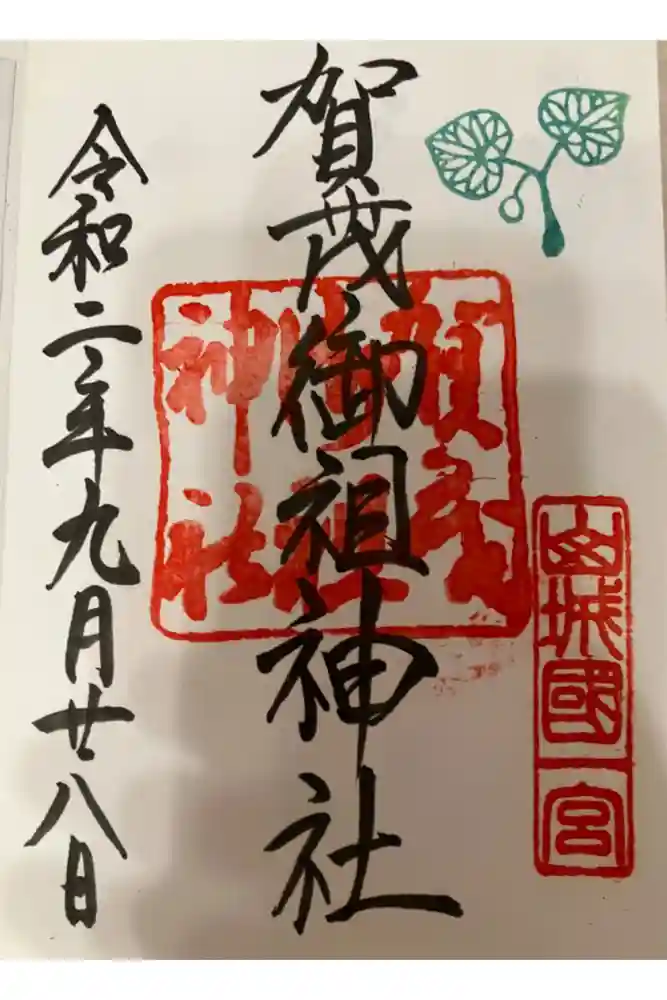 山城國一宮
賀茂御祖神社
賀茂御祖神社
令和二年九月廿八日